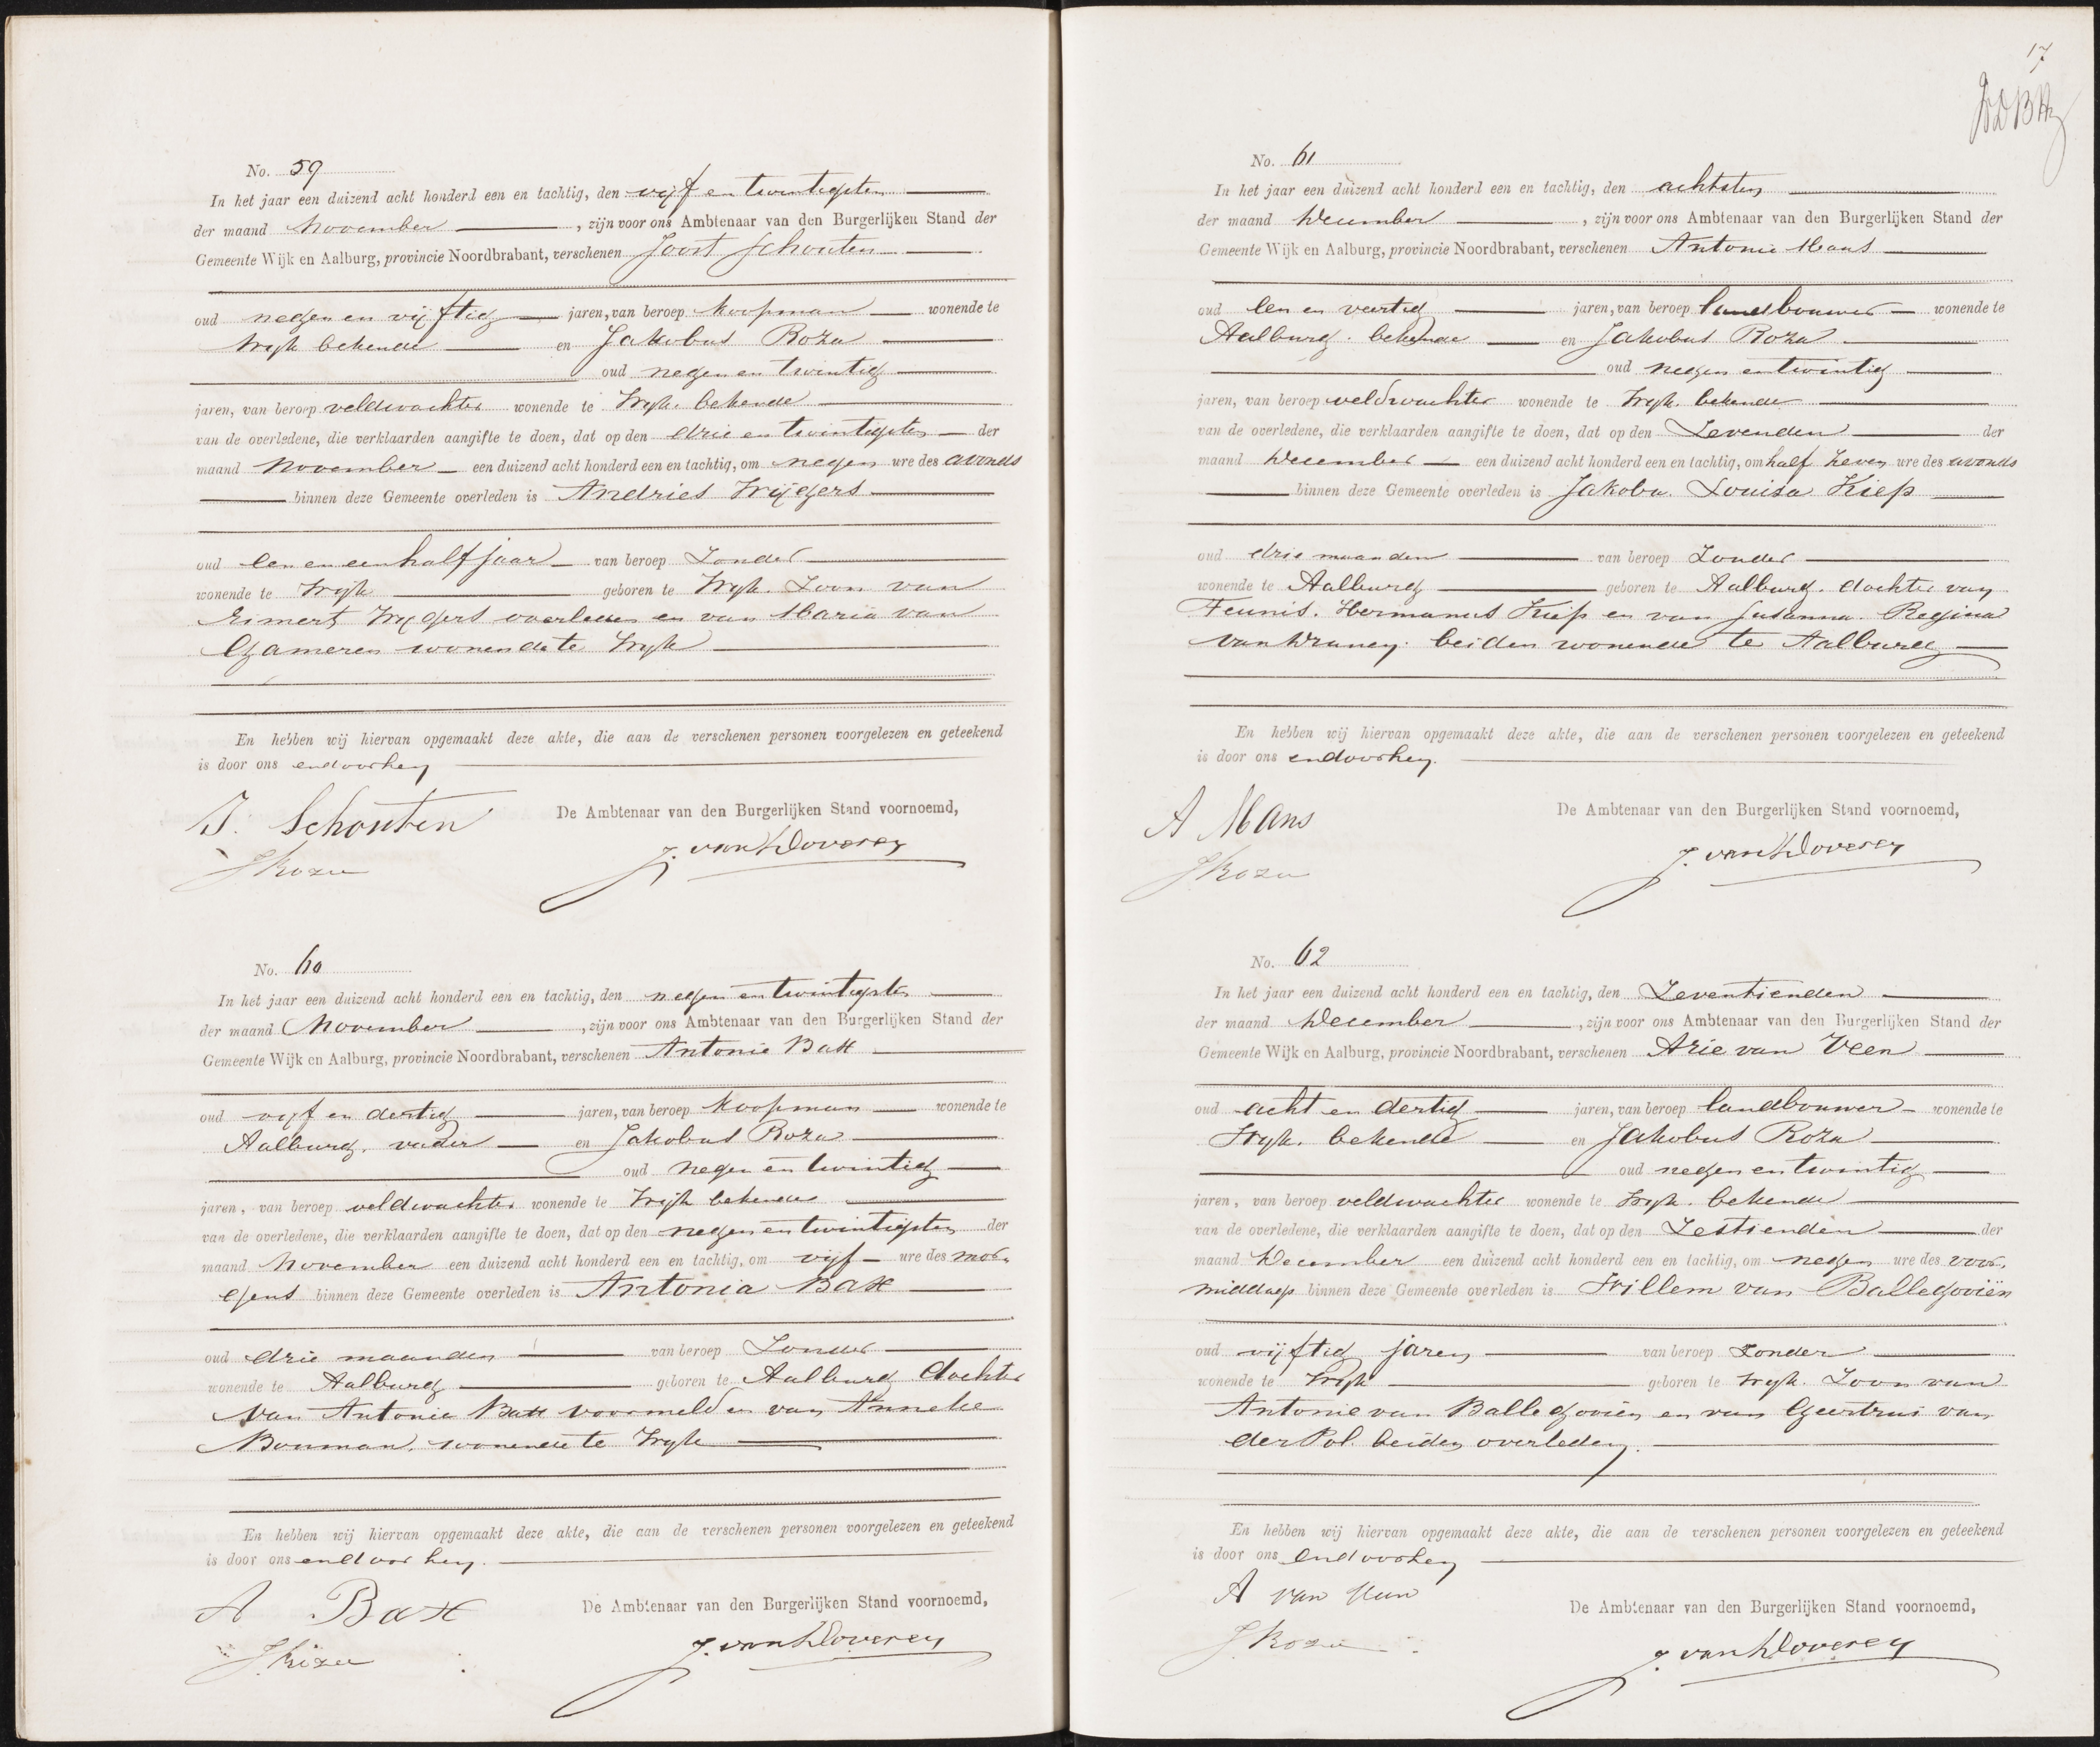 No. 59
In het jaar een duizend acht honderd een en tachtig, den vijf en twintigsten
der maand November, zijn voor ons Ambtenaar van den Burgerlijken Stand der
Gemeente Wijk en Aalburg, provincie Noordbrabant, verschenen Joost Schouten
oud negen en vijftig jaren, van beroep Koopman wonende te
Wijk bekende en Jakobus Roza
oud negen en twintig
jaren, van beroep veldwachter wonende te Wijk. bekende
van de overledene, die verklaarden aangifte te doen, dat op den drie en twintigsten der
maand November een duizend acht honderd een en tachtig, om negen ure des avonds
binnen deze Gemeente overleden is Andries Wijgers
oud een en een half jaar van beroep Zonder
wonende te Wijk geboren te Wijk. Zoon van
Eimert Wijgers overleden en van Maria van
Gameren wonende te Wijk
En hebben wij hiervan opgemaakt deze akte, die aan de verschenen personen voorgelezen en geteekend
is door ons en door hen
J. Schouten
De Ambtenaar van den Burgerlijken Stand voornoemd,
J Roza
J. van Doveren
No. 60
In het jaar een duizend acht honderd een en tachtig, den negen en twintigsten
der maand November, zijn voor ons Ambtenaar van den Burgerlijken Stand der
Gemeente Wijk en Aalburg, provincie Noordbrabant, verschenen Antonie Bax
oud vijf en dertig jaren, van beroep Koopman wonende te
Aalburg. vader en Jakobus Roza
oud negen en twintig
jaren, van beroep veldwachter wonende te Wijk bekende
van de overledene, die verklaarden aangifte te doen, dat op den negen en twintigsten der
maand November een duizend acht honderd een en tachtig, om vijf ure des mor-
gens binnen deze Gemeente overleden is Antonia Bax
oud drie maanden van beroep Zonder
wonende te Aalburg geboren te Aalburg dochter
van Antonie Bax voormeld en van Anneke
Bouman. wonende te Wijk
En hebben wij hiervan opgemaakt deze akte, die aan de verschenen personen voorgelezen en geteekend
is door ons en door hen.
A Bax
De Ambtenaar van den Burgerlijken Stand voornoemd,
J. Roza
J. van Doveren
17
No. 61
In het jaar een duizend acht honderd een en tachtig, den achtsten
der maand December, zijn voor ons Ambtenaar van den Burgerlijken Stand der
Gemeente Wijk en Aalburg, provincie Noordbrabant, verschenen Antonie Mans
oud een en veertig jaren, van beroep landbouwer wonende te
Aalburg. bekende en Jakobus Roza
oud negen en twintig
jaren, van beroep veldwachter wonende te Wijk. bekende
van de overledene, die verklaarden aangifte te doen, dat op den Zevenden der
maand December een duizend acht honderd een en tachtig, om half Zeven ure des avonds
binnen deze Gemeente overleden is Jakoba. Louisa Kiep
oud drie maanden van beroep Zonder
wonende te Aalburg geboren te Aalburg. dochter van
Teunis. Hermanus Kiep en van Susanna. Regina
van Drunen. beiden wonende te Aalburg
En hebben wij hiervan opgemaakt deze akte, die aan de verschenen personen voorgelezen en geteekend
is door ons en door hen.
A Mans
De Ambtenaar van den Burgerlijken Stand voornoemd,
J Roza
J. van Doveren
No. 62
In het jaar een duizend acht honderd een en tachtig, den Zeventienden
der maand December, zijn voor ons Ambtenaar van den Burgerlijken Stand der
Gemeente Wijk en Aalburg, provincie Noordbrabant, verschenen Arie van Veen
oud acht en dertig jaren, van beroep landbouwer wonende te
Wijk. bekende en Jakobus Roza
oud negen en twintig
jaren, van beroep veldwachter wonende te Wijk. bekende
van de overledene, die verklaarden aangifte te doen, dat op den Zestienden der
maand December een duizend acht honderd een en tachtig, om negen ure des voor-
middags binnen deze Gemeente overleden is Willem van Ballegoviën
oud vijftig jaren van beroep Zonder
wonende te Wijk geboren te Wijk. Zoon van
Antonie van Ballegoviën en van Geertrui van
der Pol. beiden overleden.
En hebben wij hiervan opgemaakt deze akte, die aan de verschenen personen voorgelezen en geteekend
is door ons en door hen
A van Veen
De Ambtenaar van den Burgerlijken Stand voornoemd,
J. Roza
J. van Doveren